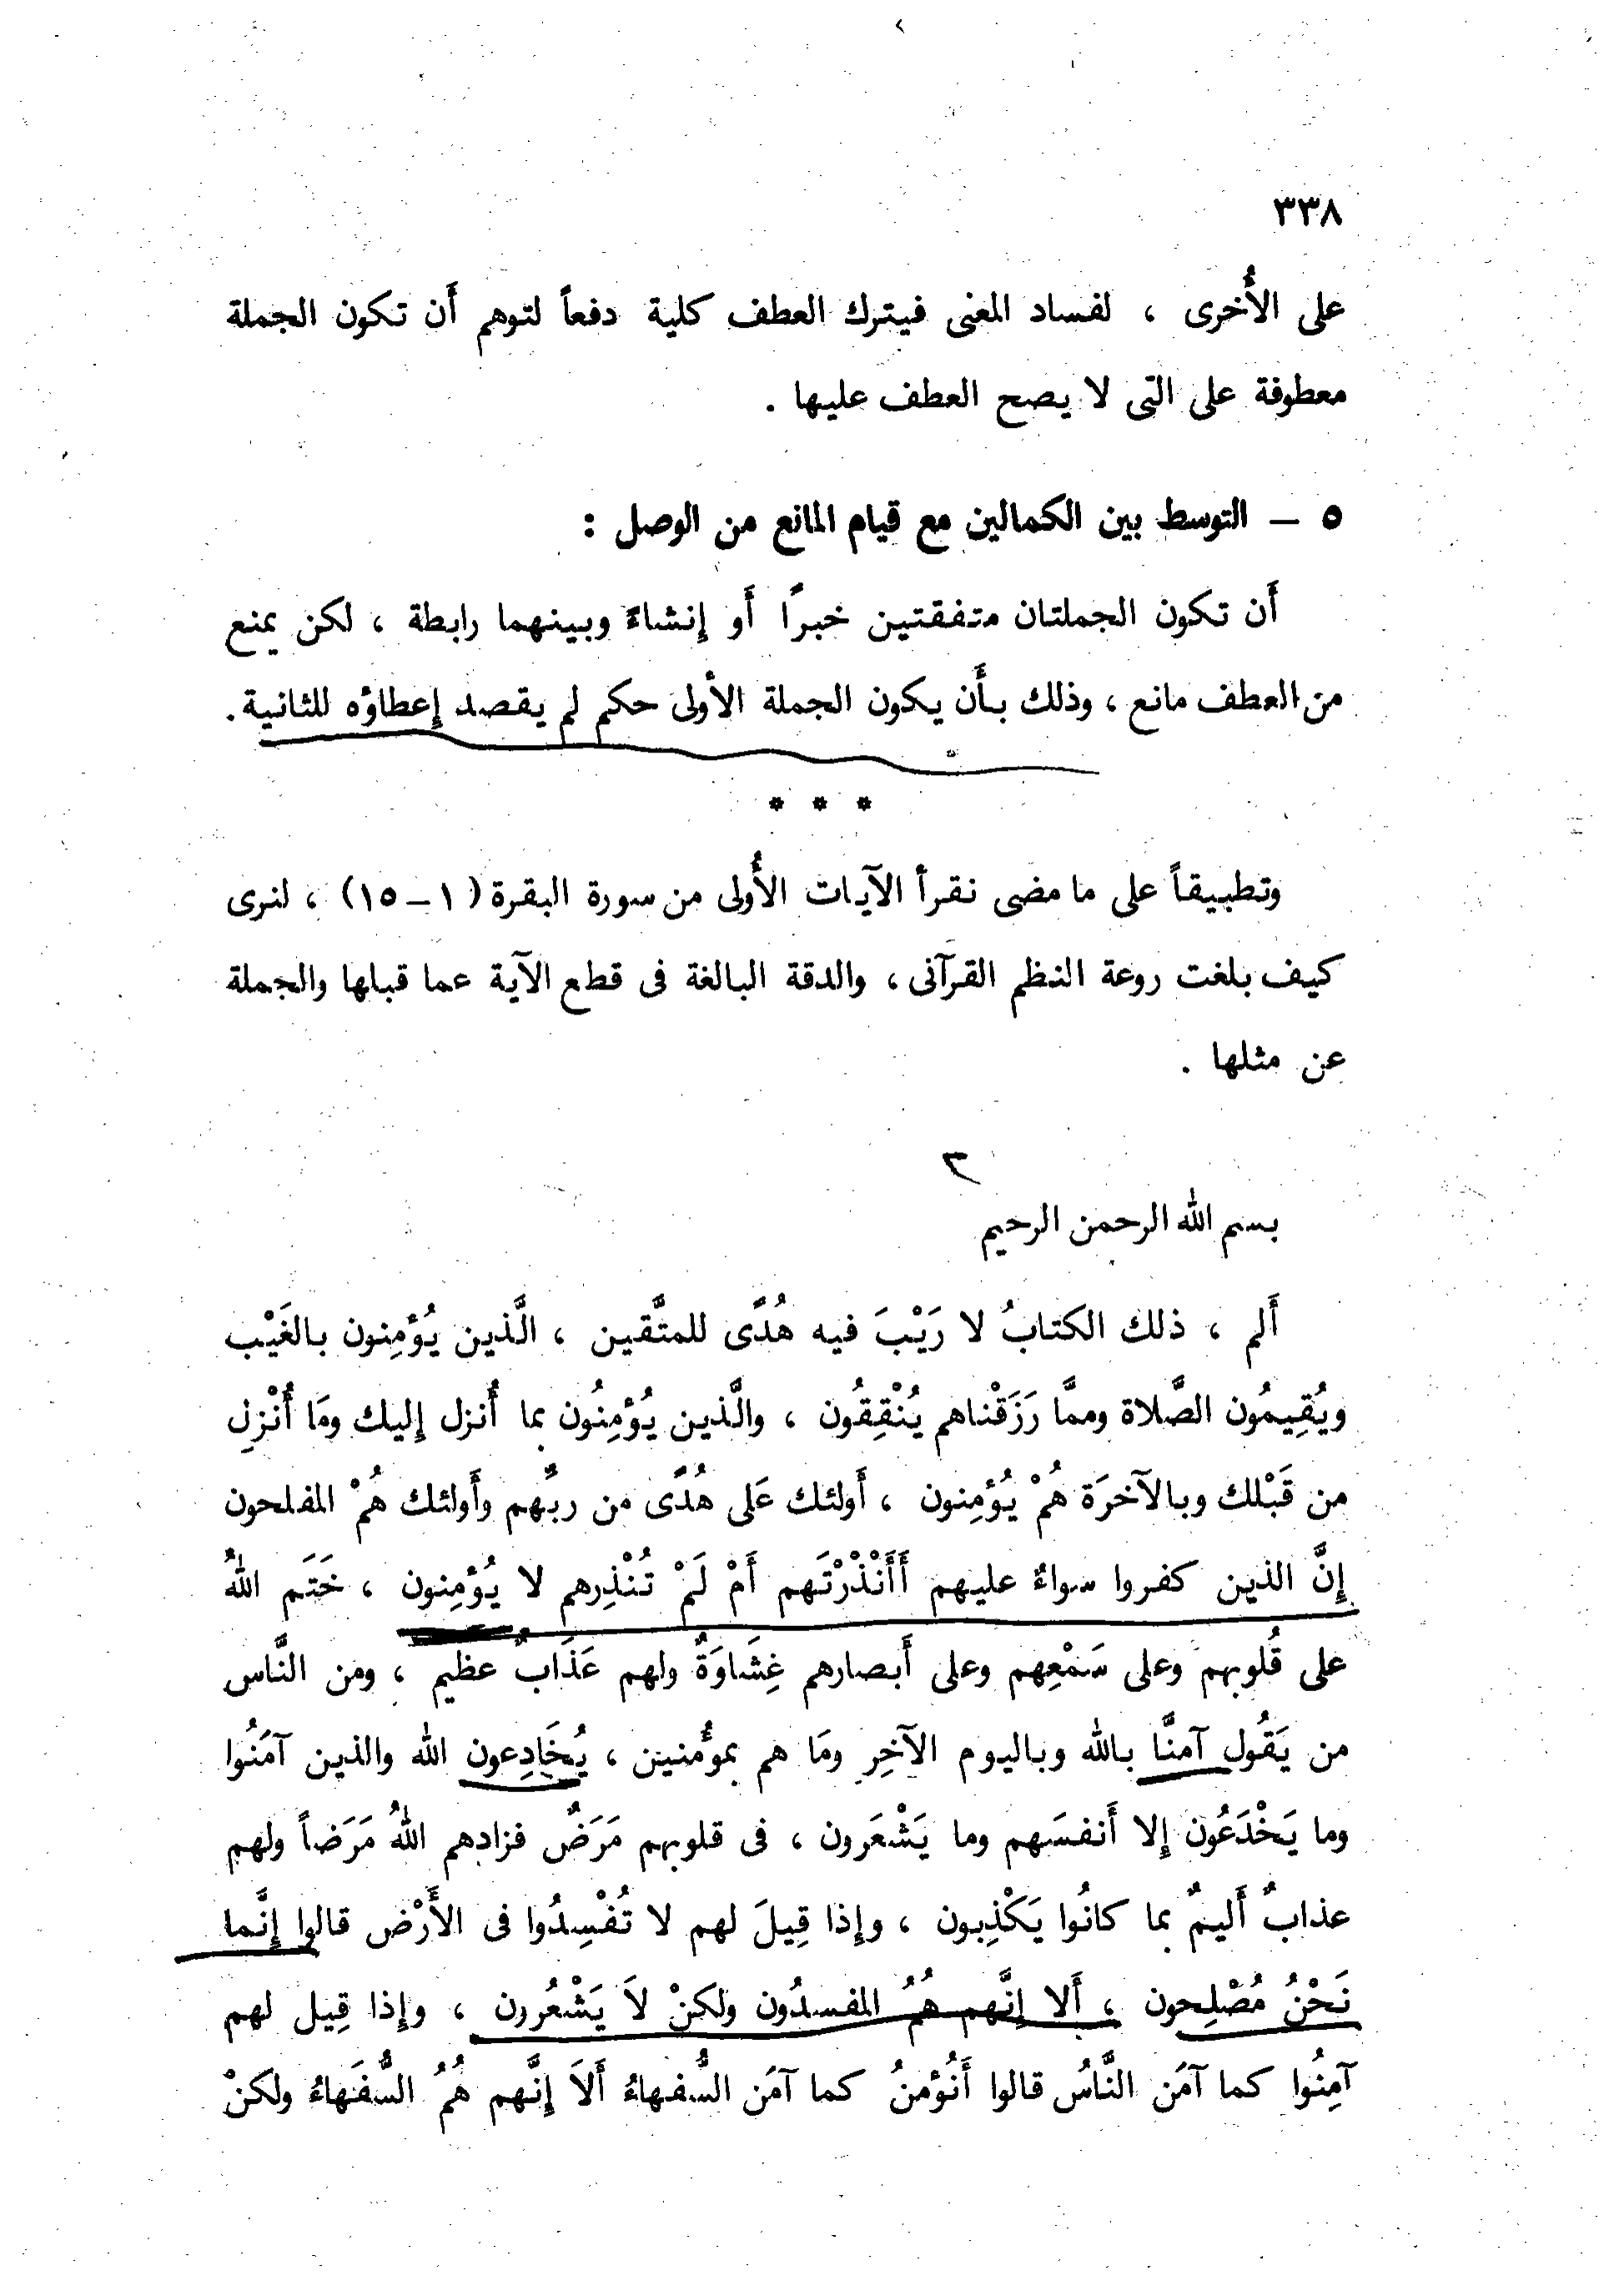 ٣٣٨
على الأُخرى ، لفساد المعنى فيترك العطف كلية دفعاً لتوهم أَن تكون الجملة
معطوفة على التى لا يصح العطف عليها .
٥ – التوسط بين الكمالين مع قيام المانع من الوصل :
أَن تكون الجملتان متفقتين خبرًا أَو إِنشاءً وبينهما رابطة ، لكن يمنع
من العطف مانع ، وذلك بأَن يكون الجملة الأُولى حكم لم يقصد إِعطاؤه للثانية .
* * *
وتطبيقاً على ما مضى نقرأ الآيات الأُولى من سورة البقرة (١ – ١٥) ، لنرى
كيف بلغت روعة النظم القرآنى ، والدقة البالغة فى قطع الآية عما قبلها والجملة
عن مثلها .
بسم الله الرحمن الرحيم
أَلم ، ذلك الكتابُ لا رَيْبَ فيه هُدًى للمتَّقين ، الَّذين يُؤمِنون بالغَيْب
ويُقِيمُون الصَّلاة ومما رَزَقْناهم يُنْفِقُون ، والَّذين يُؤمِنُون بما أُنزل إِليك ومَا أُنْزل
من قَبْلك وبالآخرَة هُمْ يُؤمِنون ، أَولئك عَلى هُدًى من ربِّهم وأَولئك هُمْ المفلحون
إِنَّ الذين كفروا سواءٌ عليهم أَأَنْذَرْتَهم أَمْ لَمْ تُنْذِرهم لا يُؤمِنون ، خَتَم اللهُ
على قُلوبهم وعلى سَمْعِهم وعلى أَبصارهم غِشَاوَةٌ ولهم عَذَابٌ عظيم ، ومن النَّاس
من يَقُول آمنَّا بالله وباليوم الآخِر ومَا هم بمؤُمنين ، يُخَادِعون الله والذين آمَنُوا
وما يَخْدَعُون إِلا أَنفسَهم وما يَشْعَرون ، فى قلوبهم مَرَضٌ فزادهم اللهُ مَرَضاً ولهم
عذابٌ أَليمٌ بما كانُوا يَكْذِبون ، وإِذا قِيلَ لهم لا تُفْسِدُوا فى الأَرْض قالوا إِنَّما
نَحْنُ مُصْلِحون ، أَلا إِنَّهم هُمُ المفسدُون ولكنْ لاَ يَشْعُررن ، وإِذا قِيل لهم
آمِنُوا كما آمَن النَّاسُ قالوا أَنُؤمنُ كما آمَن السُّفهاءُ أَلاَ إِنَّهم هُمُ السُّفَهاءُ ولكنْ